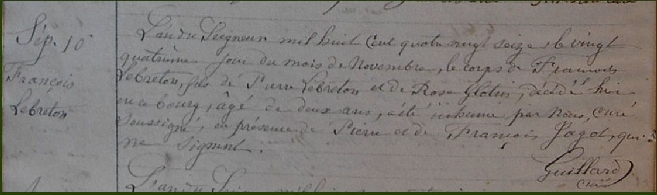 Sép. 10
François
Lebreton
L'an du Seigneur mil huit cent quatre vingt seize, le vingt
quatrième jour du mois de Novembre, le corps de François
Lebreton, fils de Pierre Lebreton et de Rose Glotin, décédé hier
en ce bourg, âgé de deux ans, a été inhumé par Nous, curé
soussigné, en présence de Pierre et de François Jagot, qui
ne signent.
Guillard
curé
L'an du